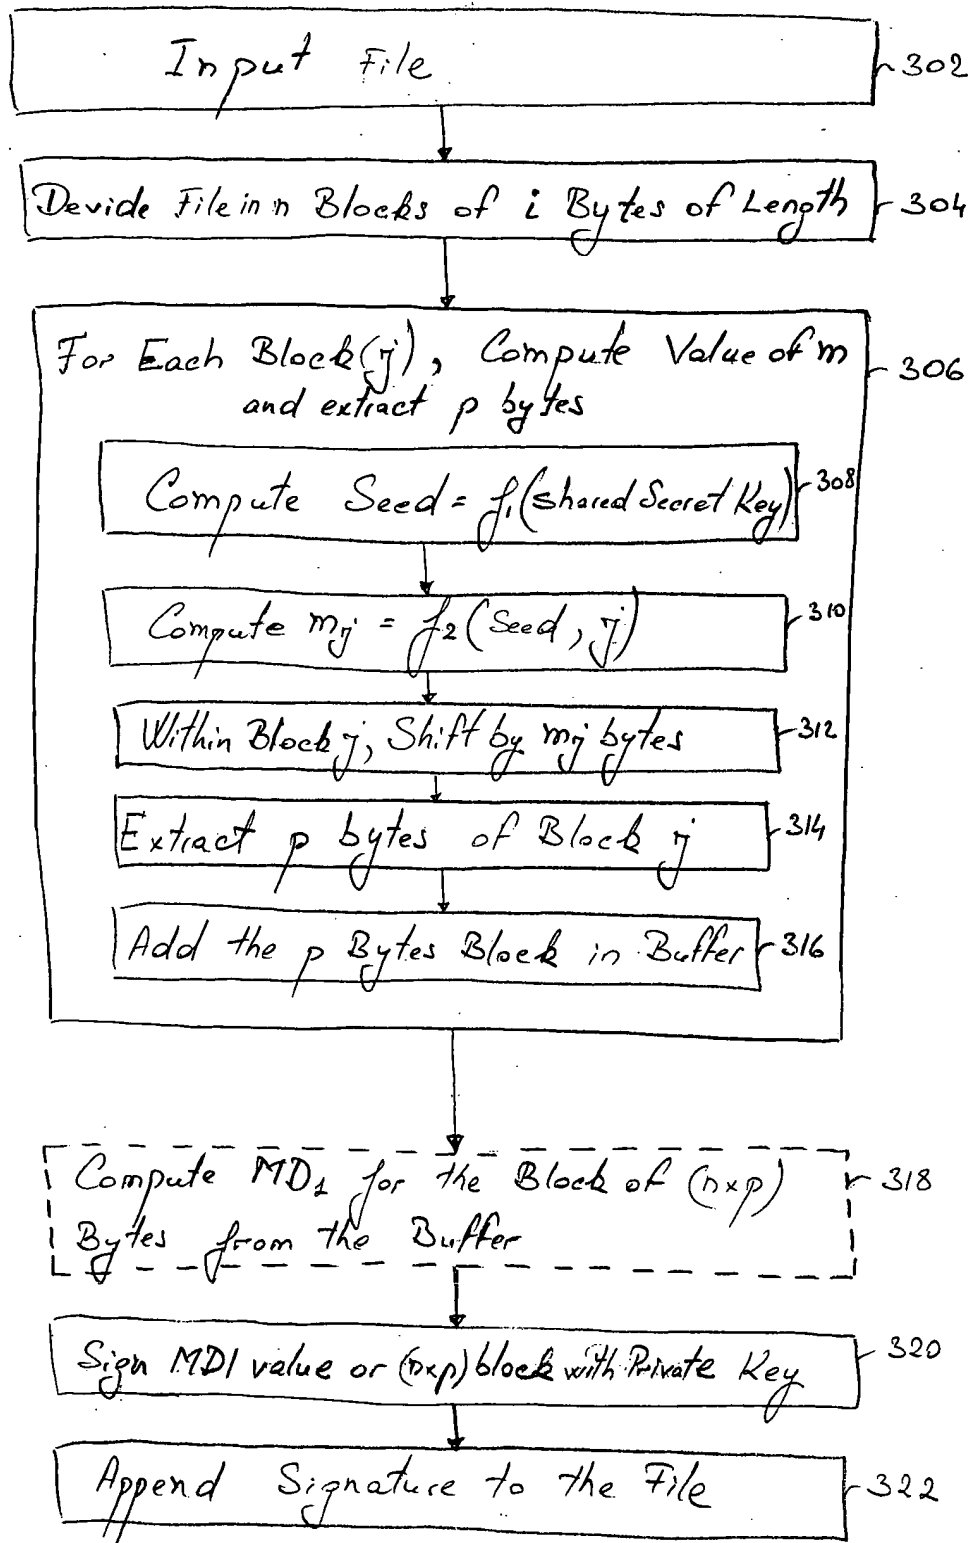 Input File
302
Devide File in n Blocks of i Bytes of Length
304
For Each Block(j), Compute Value of m
306
and extract p bytes
Compute Seed = f1(shared Secret Key)
308
Compute mj = f2(Seed, j)
310
Within Block j, Shift by mj bytes
312
Extract p bytes of Block j
314
Add the p Bytes Block in Buffer
316
Compute MD1 for the Block of (nxp)
318
Bytes from the Buffer
Sign MD1 value or (nxp) block with Private Key
320
Append Signature to the File
322